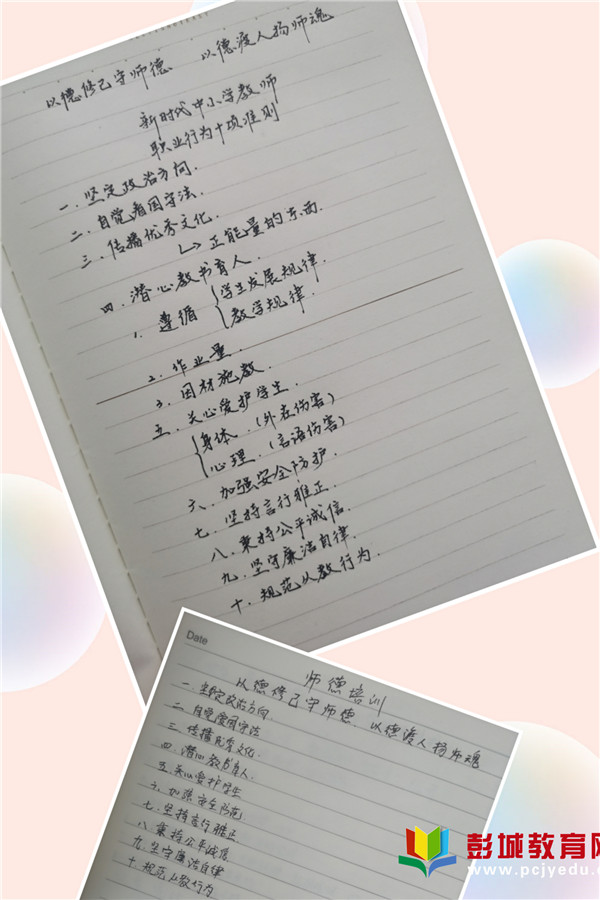 以德修己守师德 以德渡人扬师魂
新时代中小学教师
职业行为十项准则
一.坚定政治方向.
二.自觉爱国守法.
三.传播优秀文化.
↳正能量的东西.
四.潜心教书育人.
1.遵循{学生发展规律.
教学规律.
2.作业量.
3.因材施教.
五.关心爱护学生.
{身体.(外在伤害)
心理.(言语伤害)
六.加强安全防护.
七.坚持言行雅正.
八.秉持公平诚信.
九.坚守廉洁自律.
十.规范从教行为.
Date
师德培训
以德修己守师德.以德渡人扬师魂
一.坚定政治方向.
二.自觉爱国守法
三.传播优秀文化.
四.潜心教书育人.
五.关心爱护学生
六.加强安全防范
七.坚持言行雅正
八.秉持公平诚信
九.坚守廉洁自律
十.规范从教行为
彭城教育网
www.pcjyedu.c